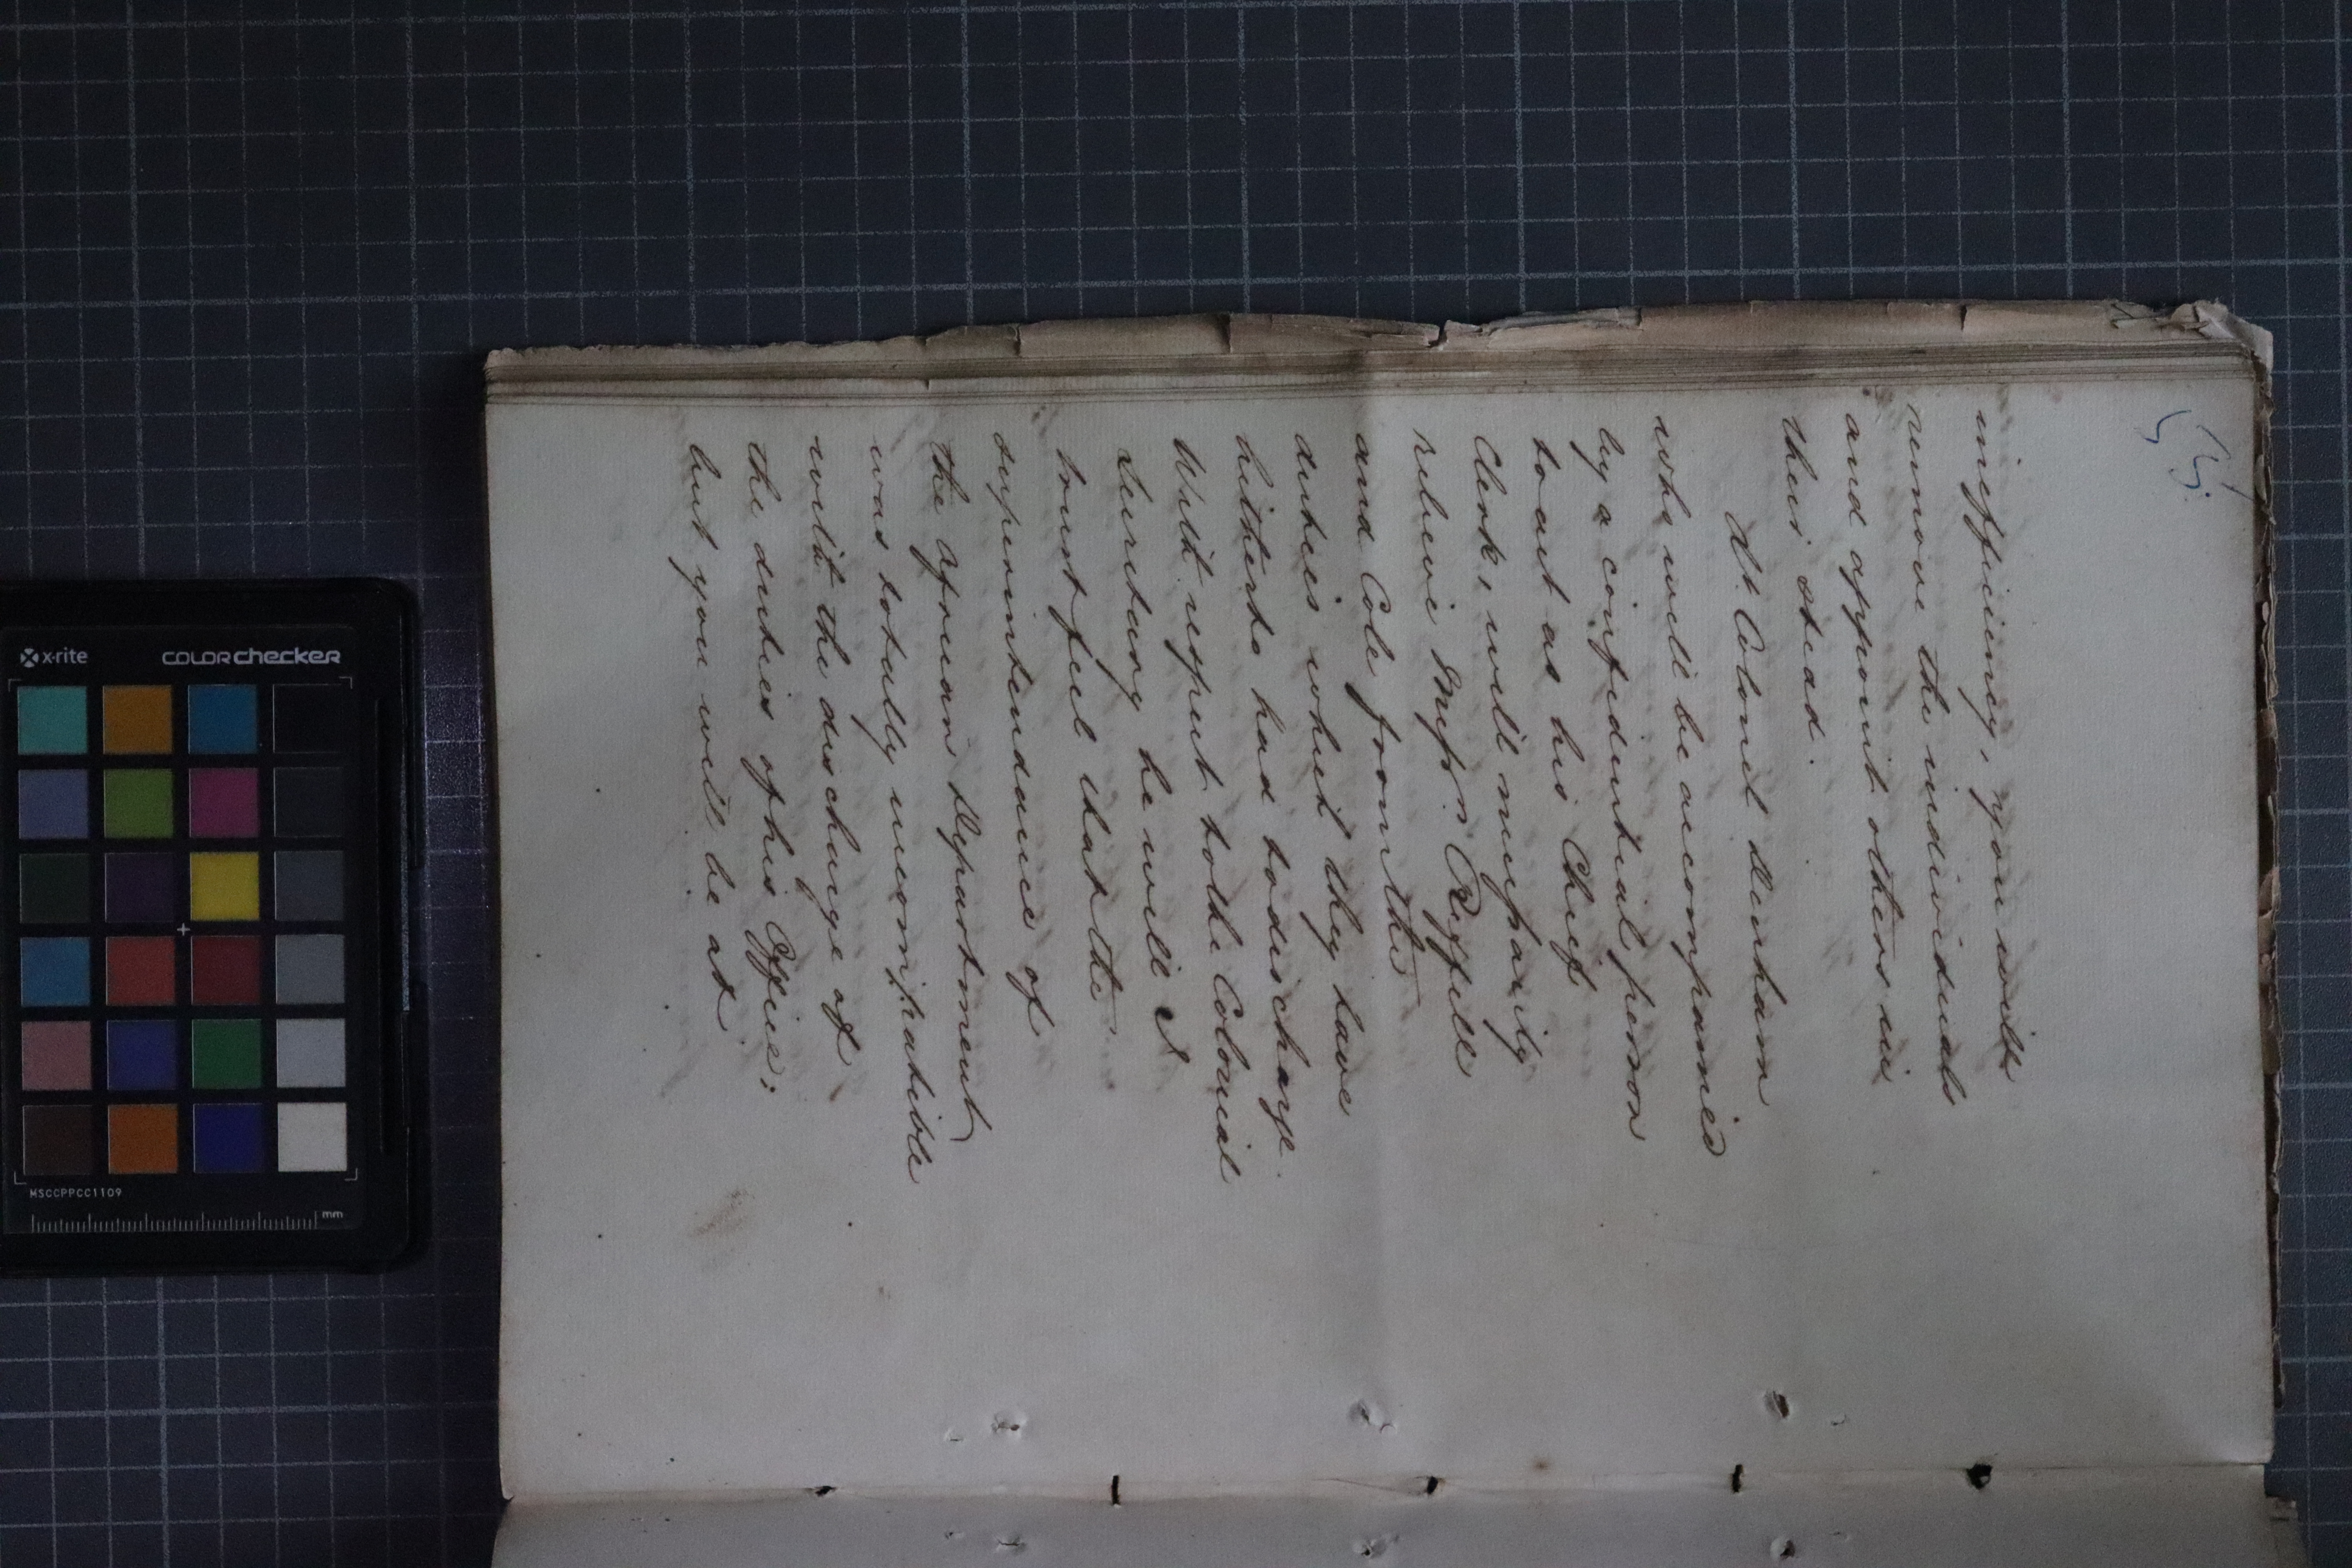 55.
inefficiency, you will
remove the individuals
and appoint others in
their stead.
Lt. Colonel Denham
who will be accompanied
by a confidential person
to act as his Chief
Clerk, will necessarily
relieve Messrs. Reffell
and Cole from the
duties which they have
hitherto had to discharge.
With respect to the Colonial
Secretary he will I
trust feel that the
superintendance of
the African Department
was totally incompatible
with the discharge of
the duties of his Office;
but you will be at
x-rite COLORchecker
MSCCPPCC1109
mm